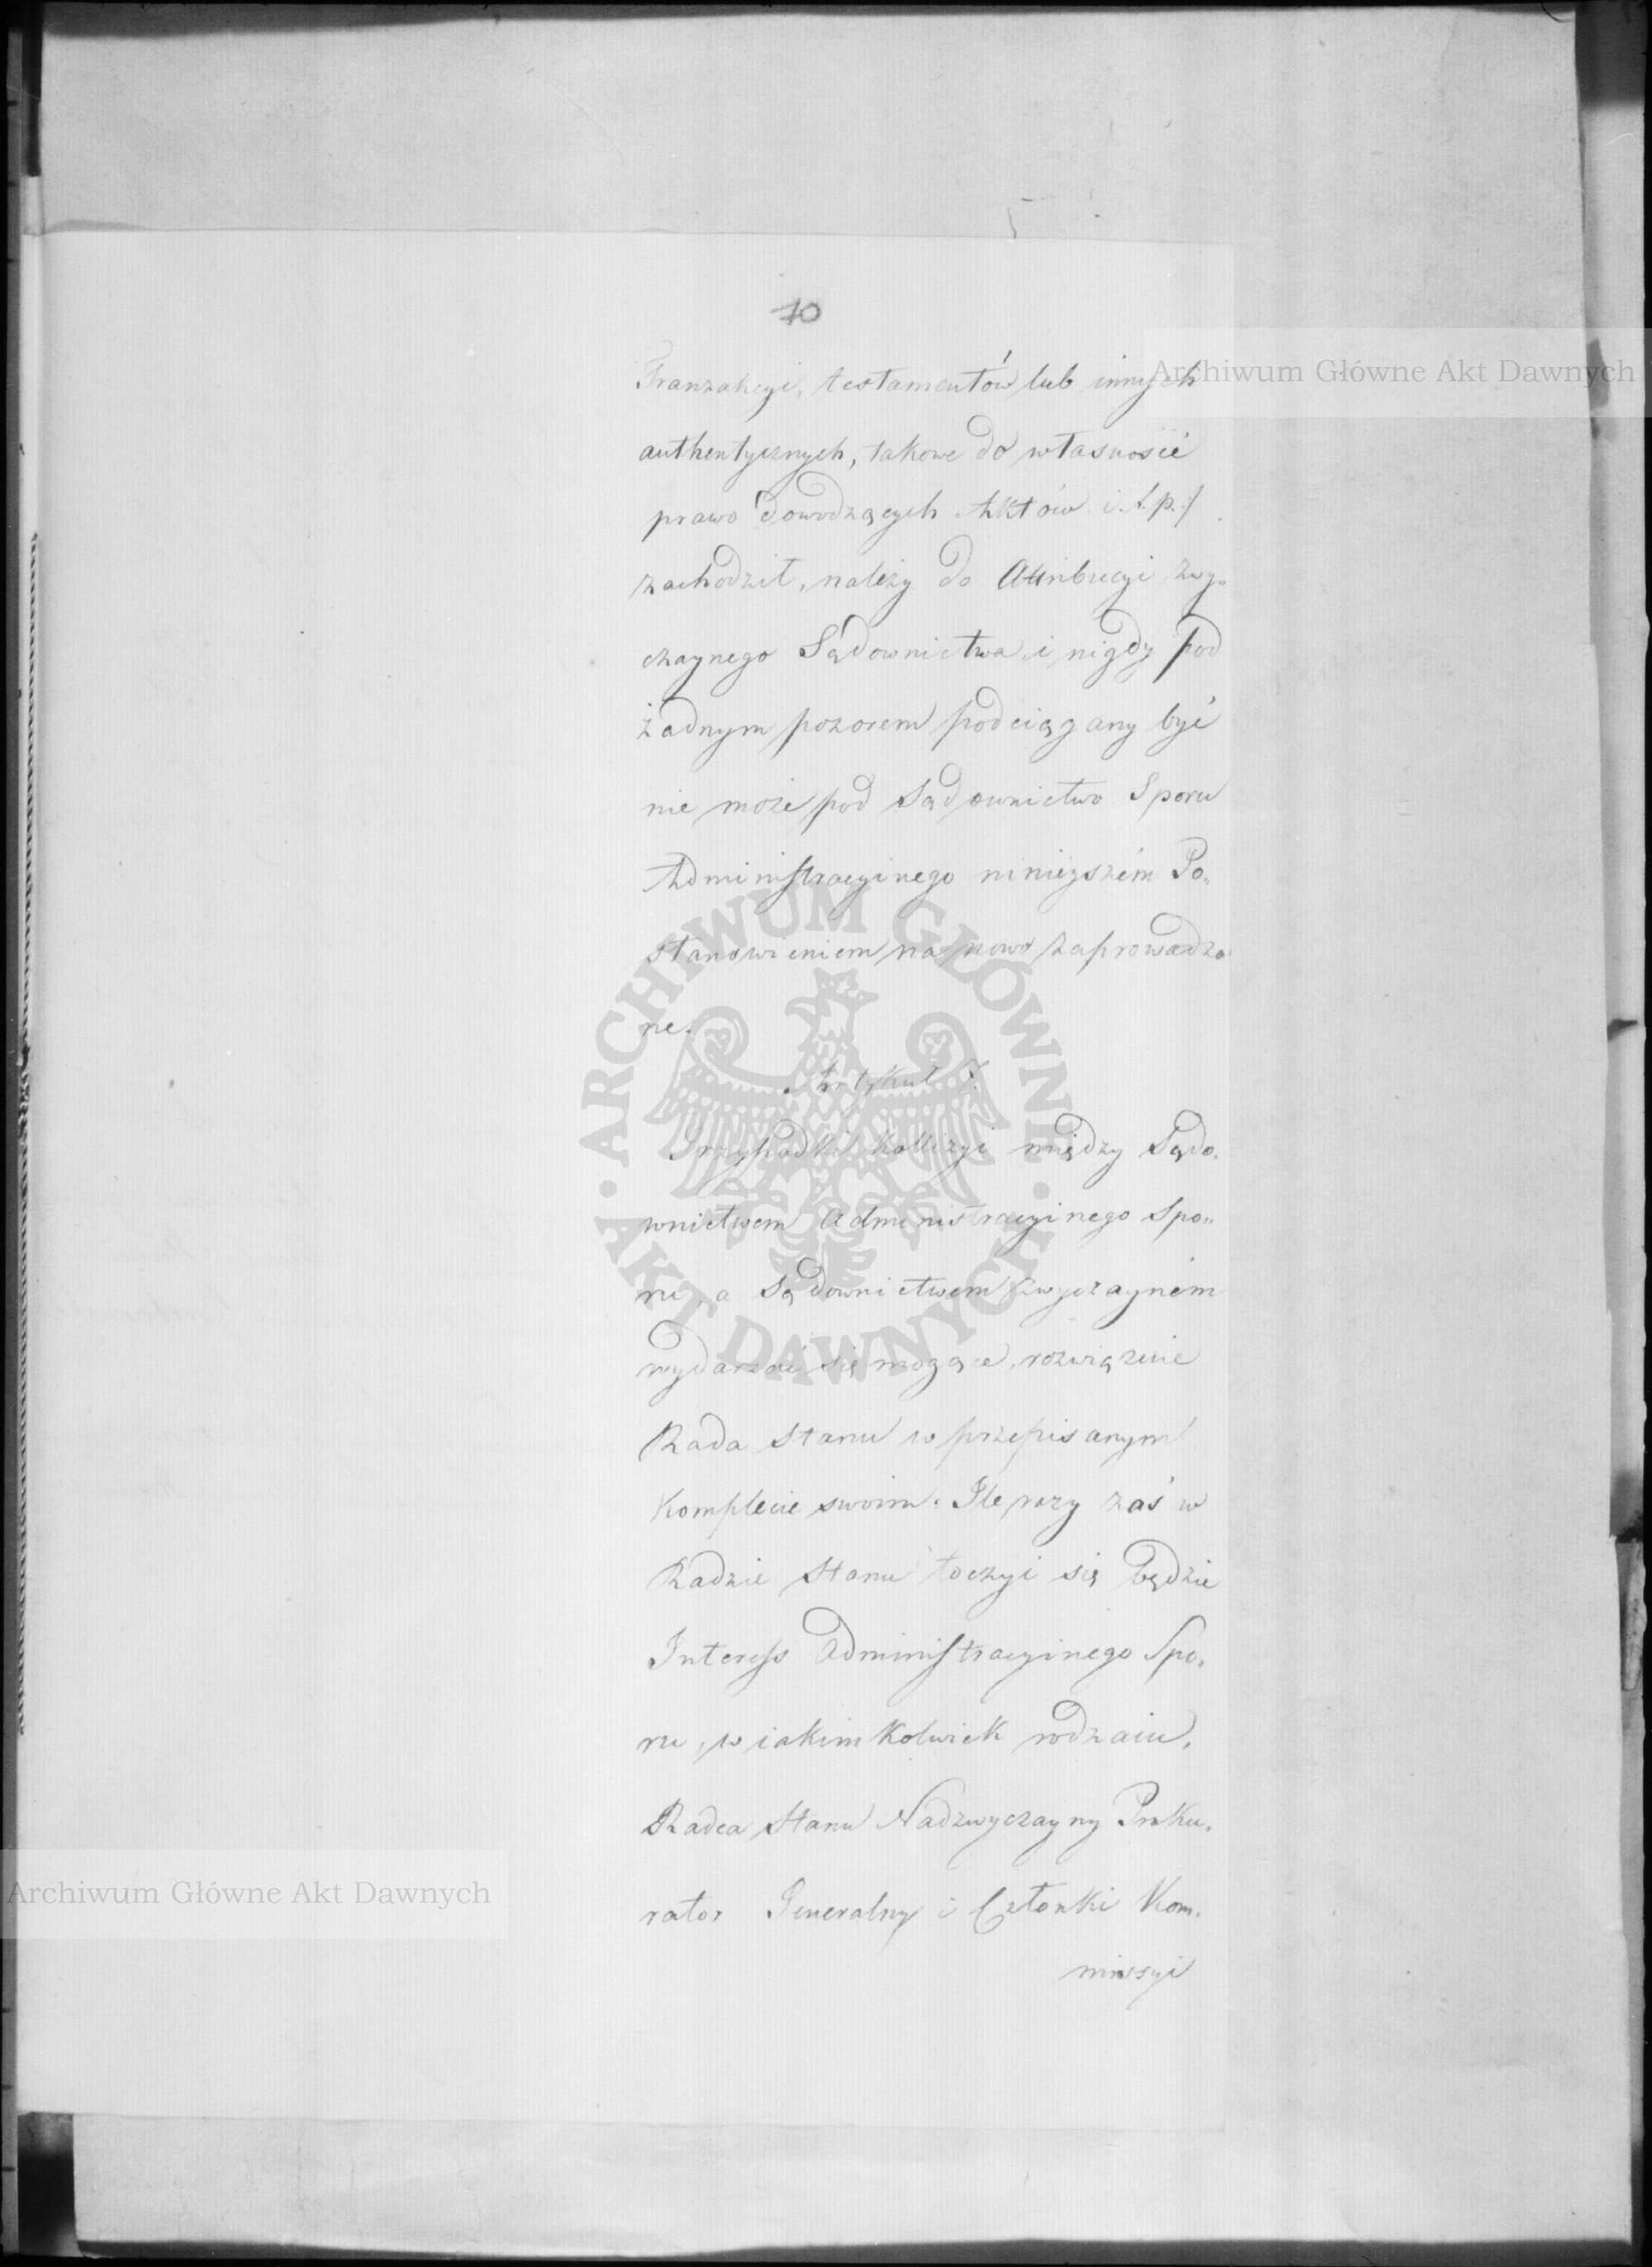 10
Tranzakcyi, testamentów lub innych
authentycznych, takowe do własności
prawo dowodzących Aktów i.t.p:/
zachodził, należy do Attribucyi zwy„
czaynego Sądownictwa, i nigdy pod
żadnym pozorem podciągany być
nie może pod Sądownictwo Sporu
Administracyinego ninieyszém Po„
stanowieniem na nowo zaprowadzo„
ne.
Artykuł 7.
Przypadki kollizyi między Sądo„
wnictwem Administracyinego Spo„
ru, a Sądownictwem zwyczayném
wydarzać się mogące, rozwiąże
Rada Stanu w przepisanym
Komplecie swoim. Ile razy zaś w
Radzie Stanu toczyć się będzie
Interess Administracyinego Spo„
ru, w iakimkolwiek rodzaiu,
Radca Stanu Nadzwyczayny Proku„
rator Generalny i Członki Kom„
missyi
Archiwum Główne Akt Dawnych
ARCHIWUM GŁÓWNE · AKT DAWNYCH ·
Archiwum Główne Akt Dawnych